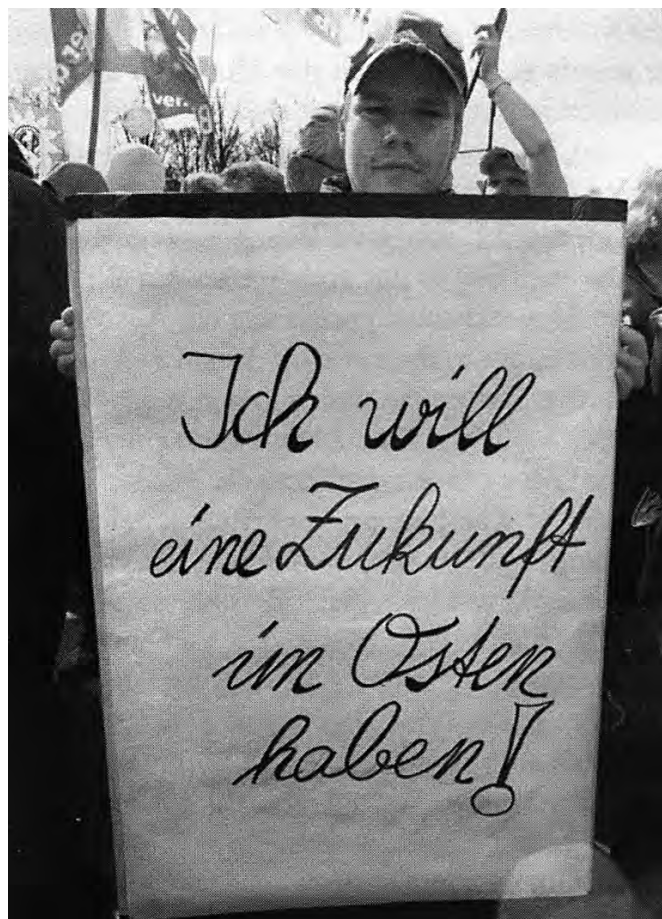 ver.
Ich will
eine Zukunft
im Osten
haben!